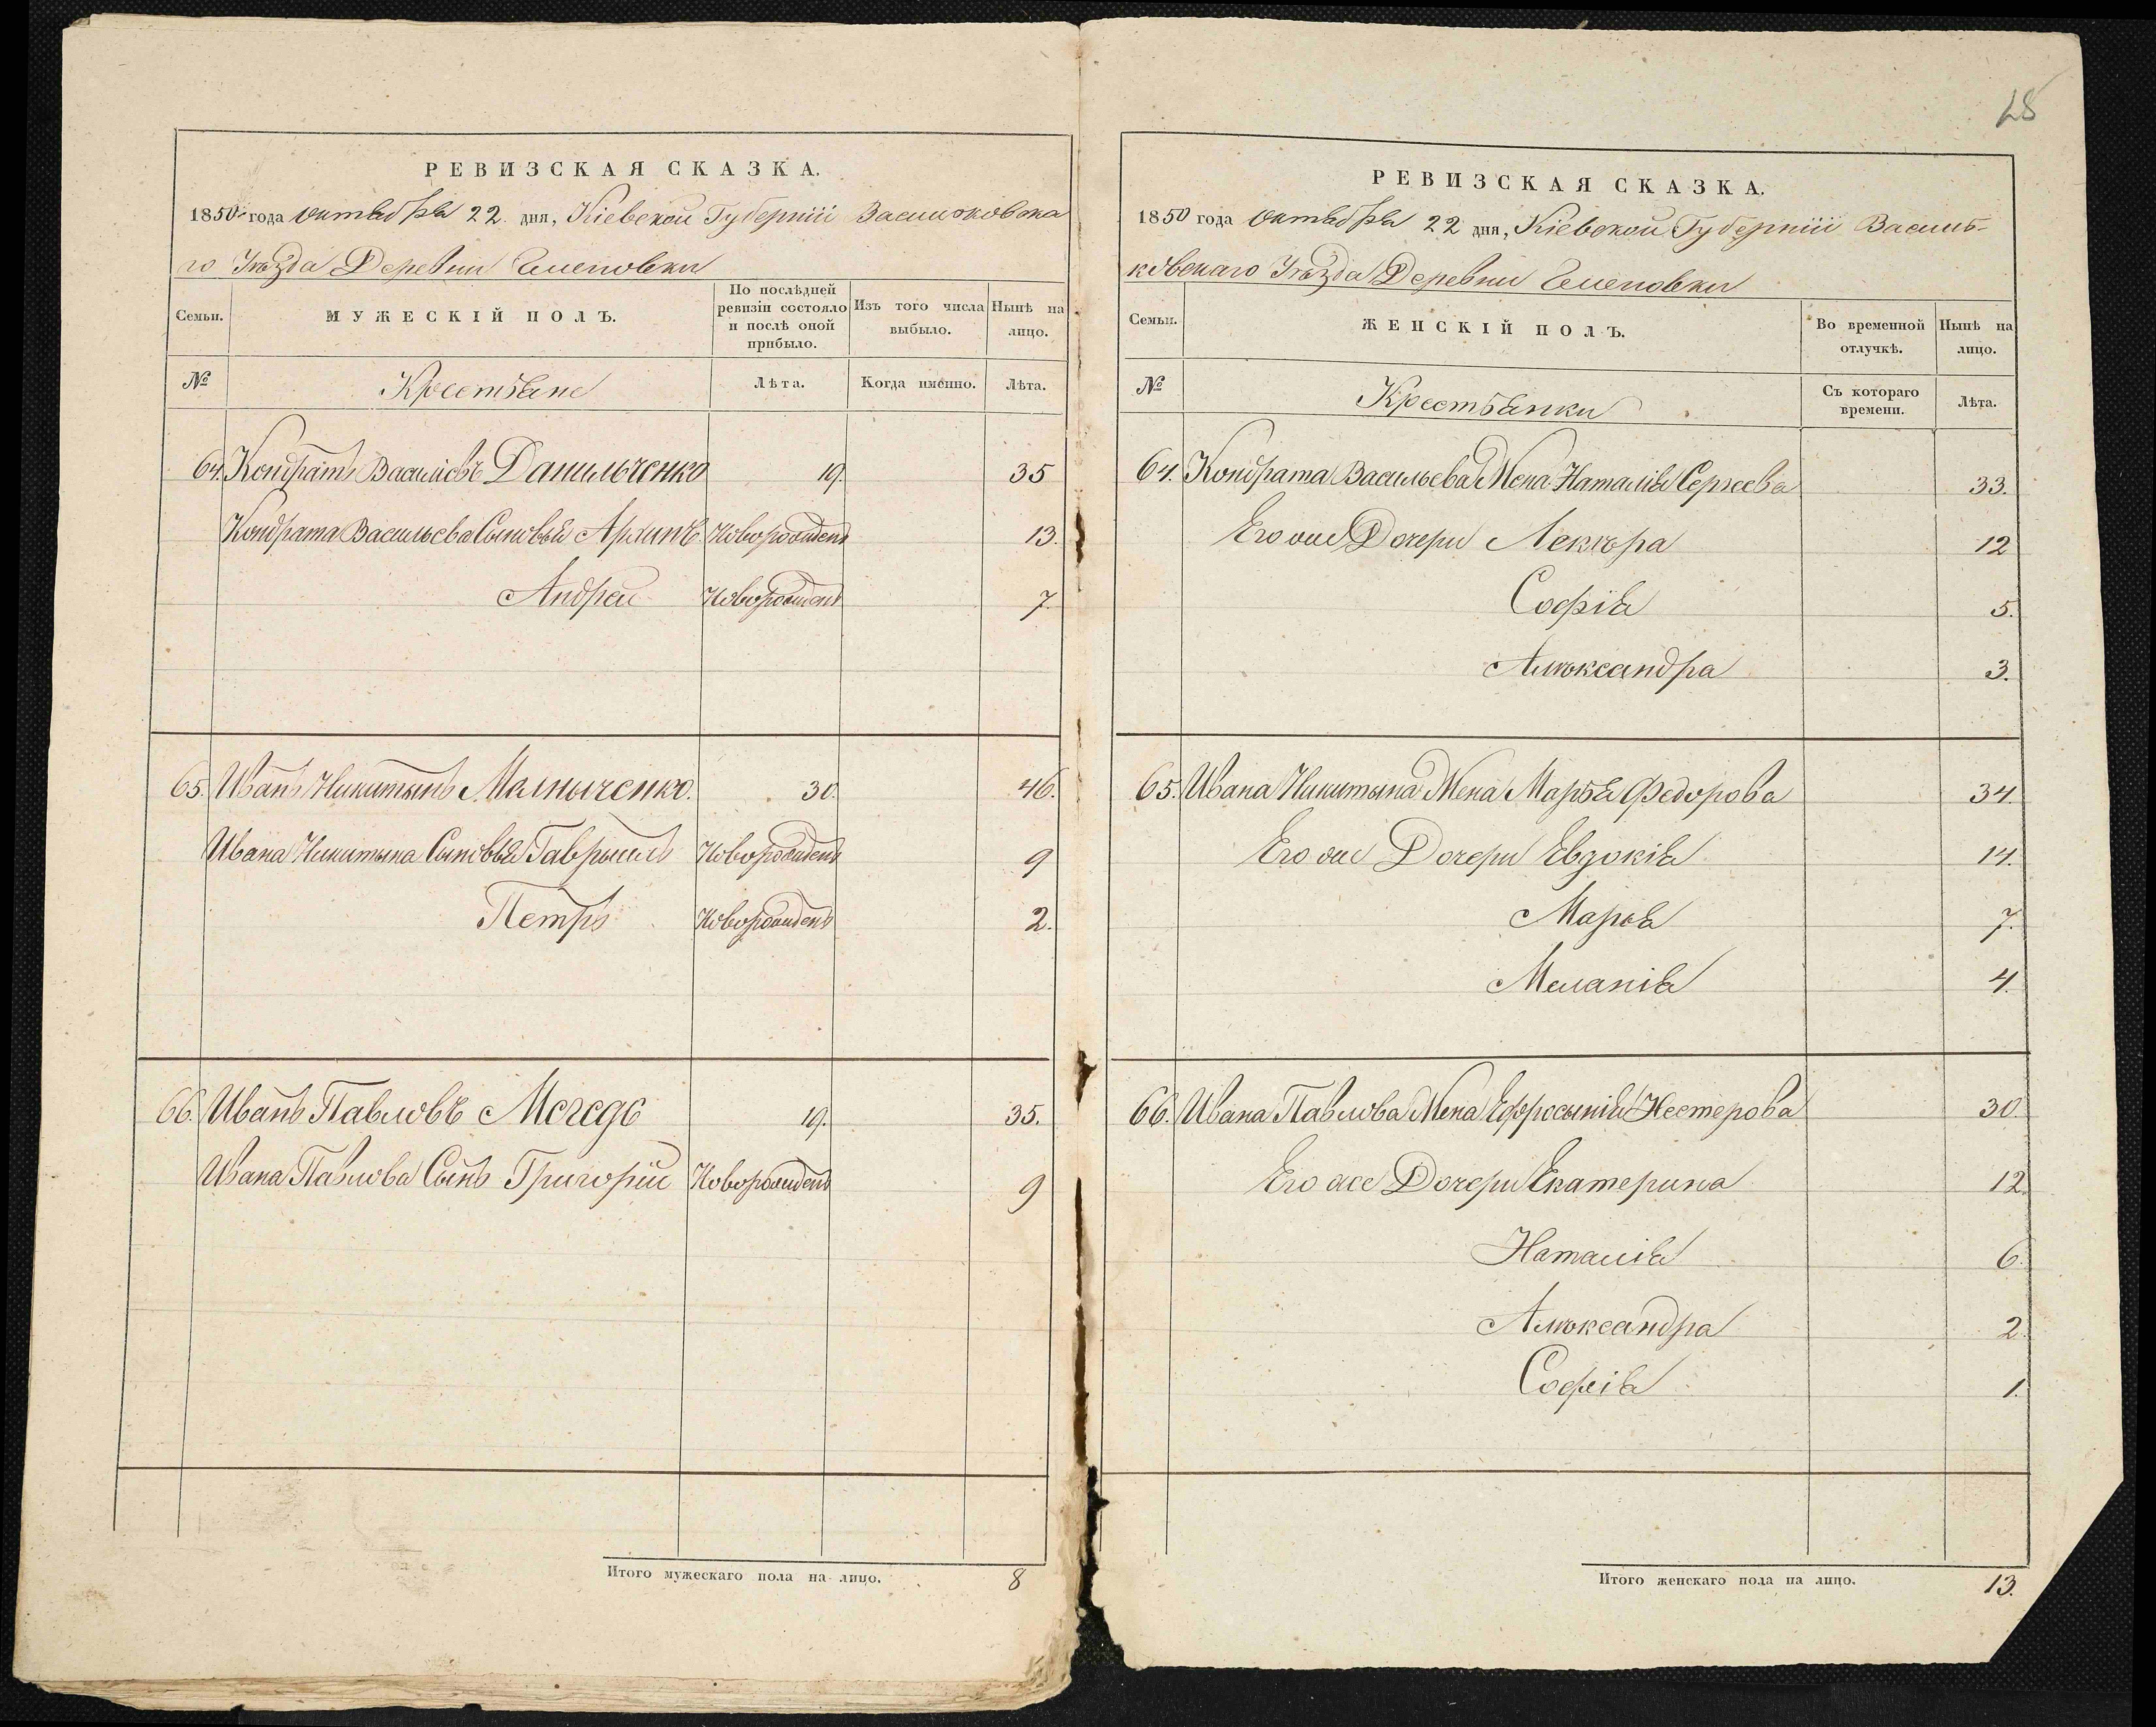 28
РЕВИЗСКАЯ СКАЗКА.
1850 года Октября 22 дня, Кіевской Губерніи Васильковска
го Уѣзда Деревни
Семьи.
МУЖЕСКІЙ ПОЛЪ.
По послѣдней ревизіи состояло и послѣ оной прибыло.
Изъ того числа выбыло.
Нынѣ на лицо.
№
Крестьяне
Лѣта.
Когда именно.
Лѣта.
64. Кондратъ Васильевъ Данильченко 19. 35
Кондрата Васильева Сыновья Архипъ Новорожденъ 13.
Андрей Новорожденъ 7.
65. Иванъ Никитынъ 30. 46.
Ивана Никитына Сыновья Гаврыилъ Новорожденъ 9
Петръ Новорожденъ 2.
66. Иванъ Павловъ 19. 35.
Ивана Павлова Сынъ Григорій Новорожденъ 9
Итого мужескаго пола на лицо. 8
РЕВИЗСКАЯ СКАЗКА.
1850 года Октября 22 дня, Кіевской Губерніи Василь-
ковскаго Уѣзда Деревни
Семьи.
ЖЕНСКІЙ ПОЛЪ.
Во временной отлучкѣ.
Нынѣ на лицо.
№
Крестьянки
Съ котораго времени.
Лѣта.
64. Кондрата Васильева Жена Наталія Сергеева 33.
Его же Дочери 12
Софія 5.
Алюксандра 3.
65. Ивана Никитына Жена Марья Федорова 34.
Его же Дочери Евдокія 14.
Марья 7.
Меланія 4.
66. Ивана Павлова Жена Ефросынія Нестерова 30
Его же Дочери Екатерина 12.
Наталія 6.
Алюксандра 2.
Софія 1.
Итого женскаго пола на лицо. 13.